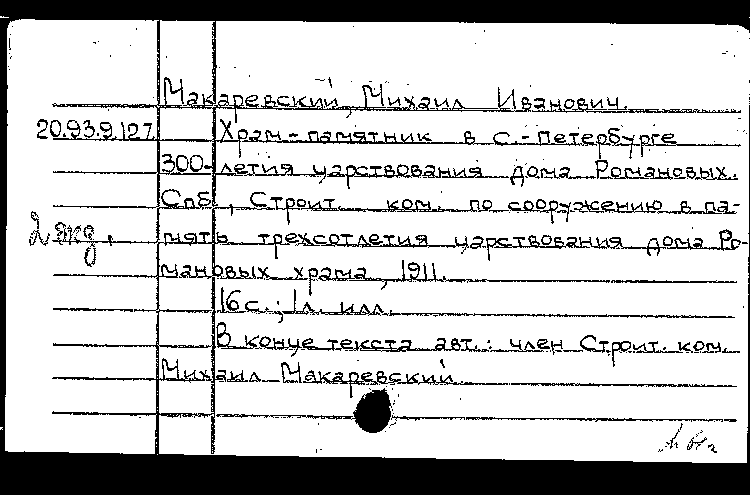 Макаревский, Михаил Иванович.
20.93.9.127 Храм-памятник в С.-Петербурге
300-летия царствования дома Романовых.
Спб., Строит. ком. по сооружению в па-
2 экз, мять трехсотлетия царствования дома Ро-
мановых храма, 1911.
16 с.; 1 л. илл.
В конце текста авт.: член Строит. ком.
Михаил Макаревский